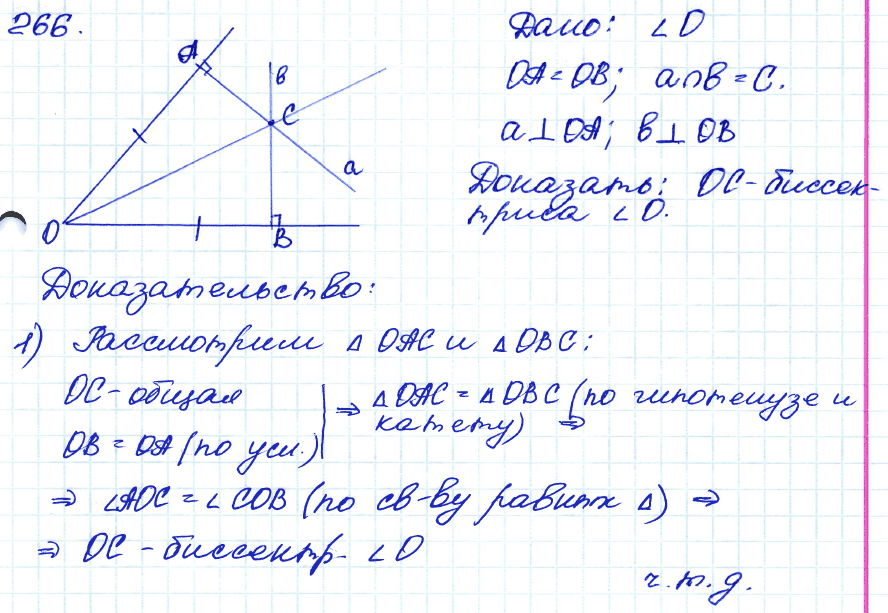 266.
A
в
C
а
O
B
Дано: ∠O
OA = OB; a∩в = C.
a⊥OA; в⊥OB
Доказать: OC - биссек-
триса ∠O.
Доказательство:
1) Рассмотрим △ OAC и △ OBC:
OC - общая
OB = OA (по усл.)
⇒ △OAC = △OBC (по гипотенузе и
катету) ⇒
⇒ ∠AOC = ∠COB (по св-ву равных △) ⇒
⇒ OC - биссектр. ∠O
ч.т.д.